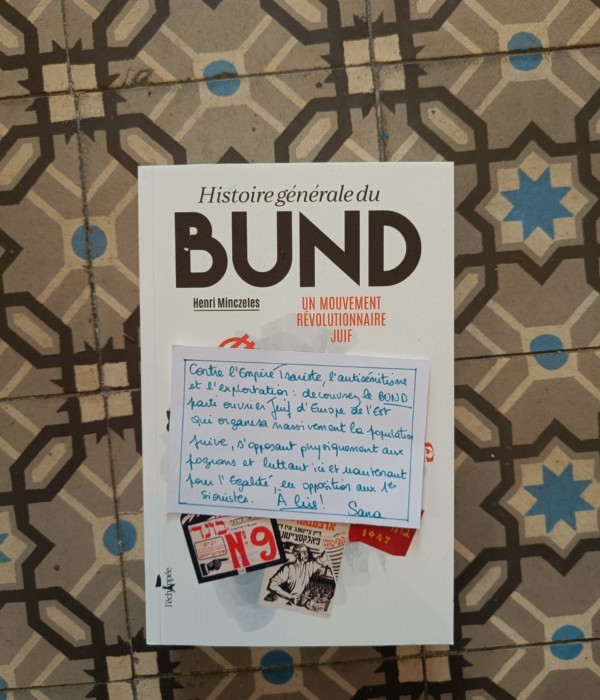 Histoire générale du
BUND
Henri Minczeles
UN MOUVEMENT
RÉVOLUTIONNAIRE
JUIF
Contre l'Empire Tsariste, l'antisémitisme
et l'exploitation : decouvrez le BUND
parti ouvrier Juif d'Europe de l'Est
qui organisa massivement la population
juive, s'opposant physiquement aux
pogroms et luttant ici et maintenant
pour l'Egalité, en opposition aux 1ers
Sionistes. À lire! Sana
בונד
N°9
1947
l'échappée